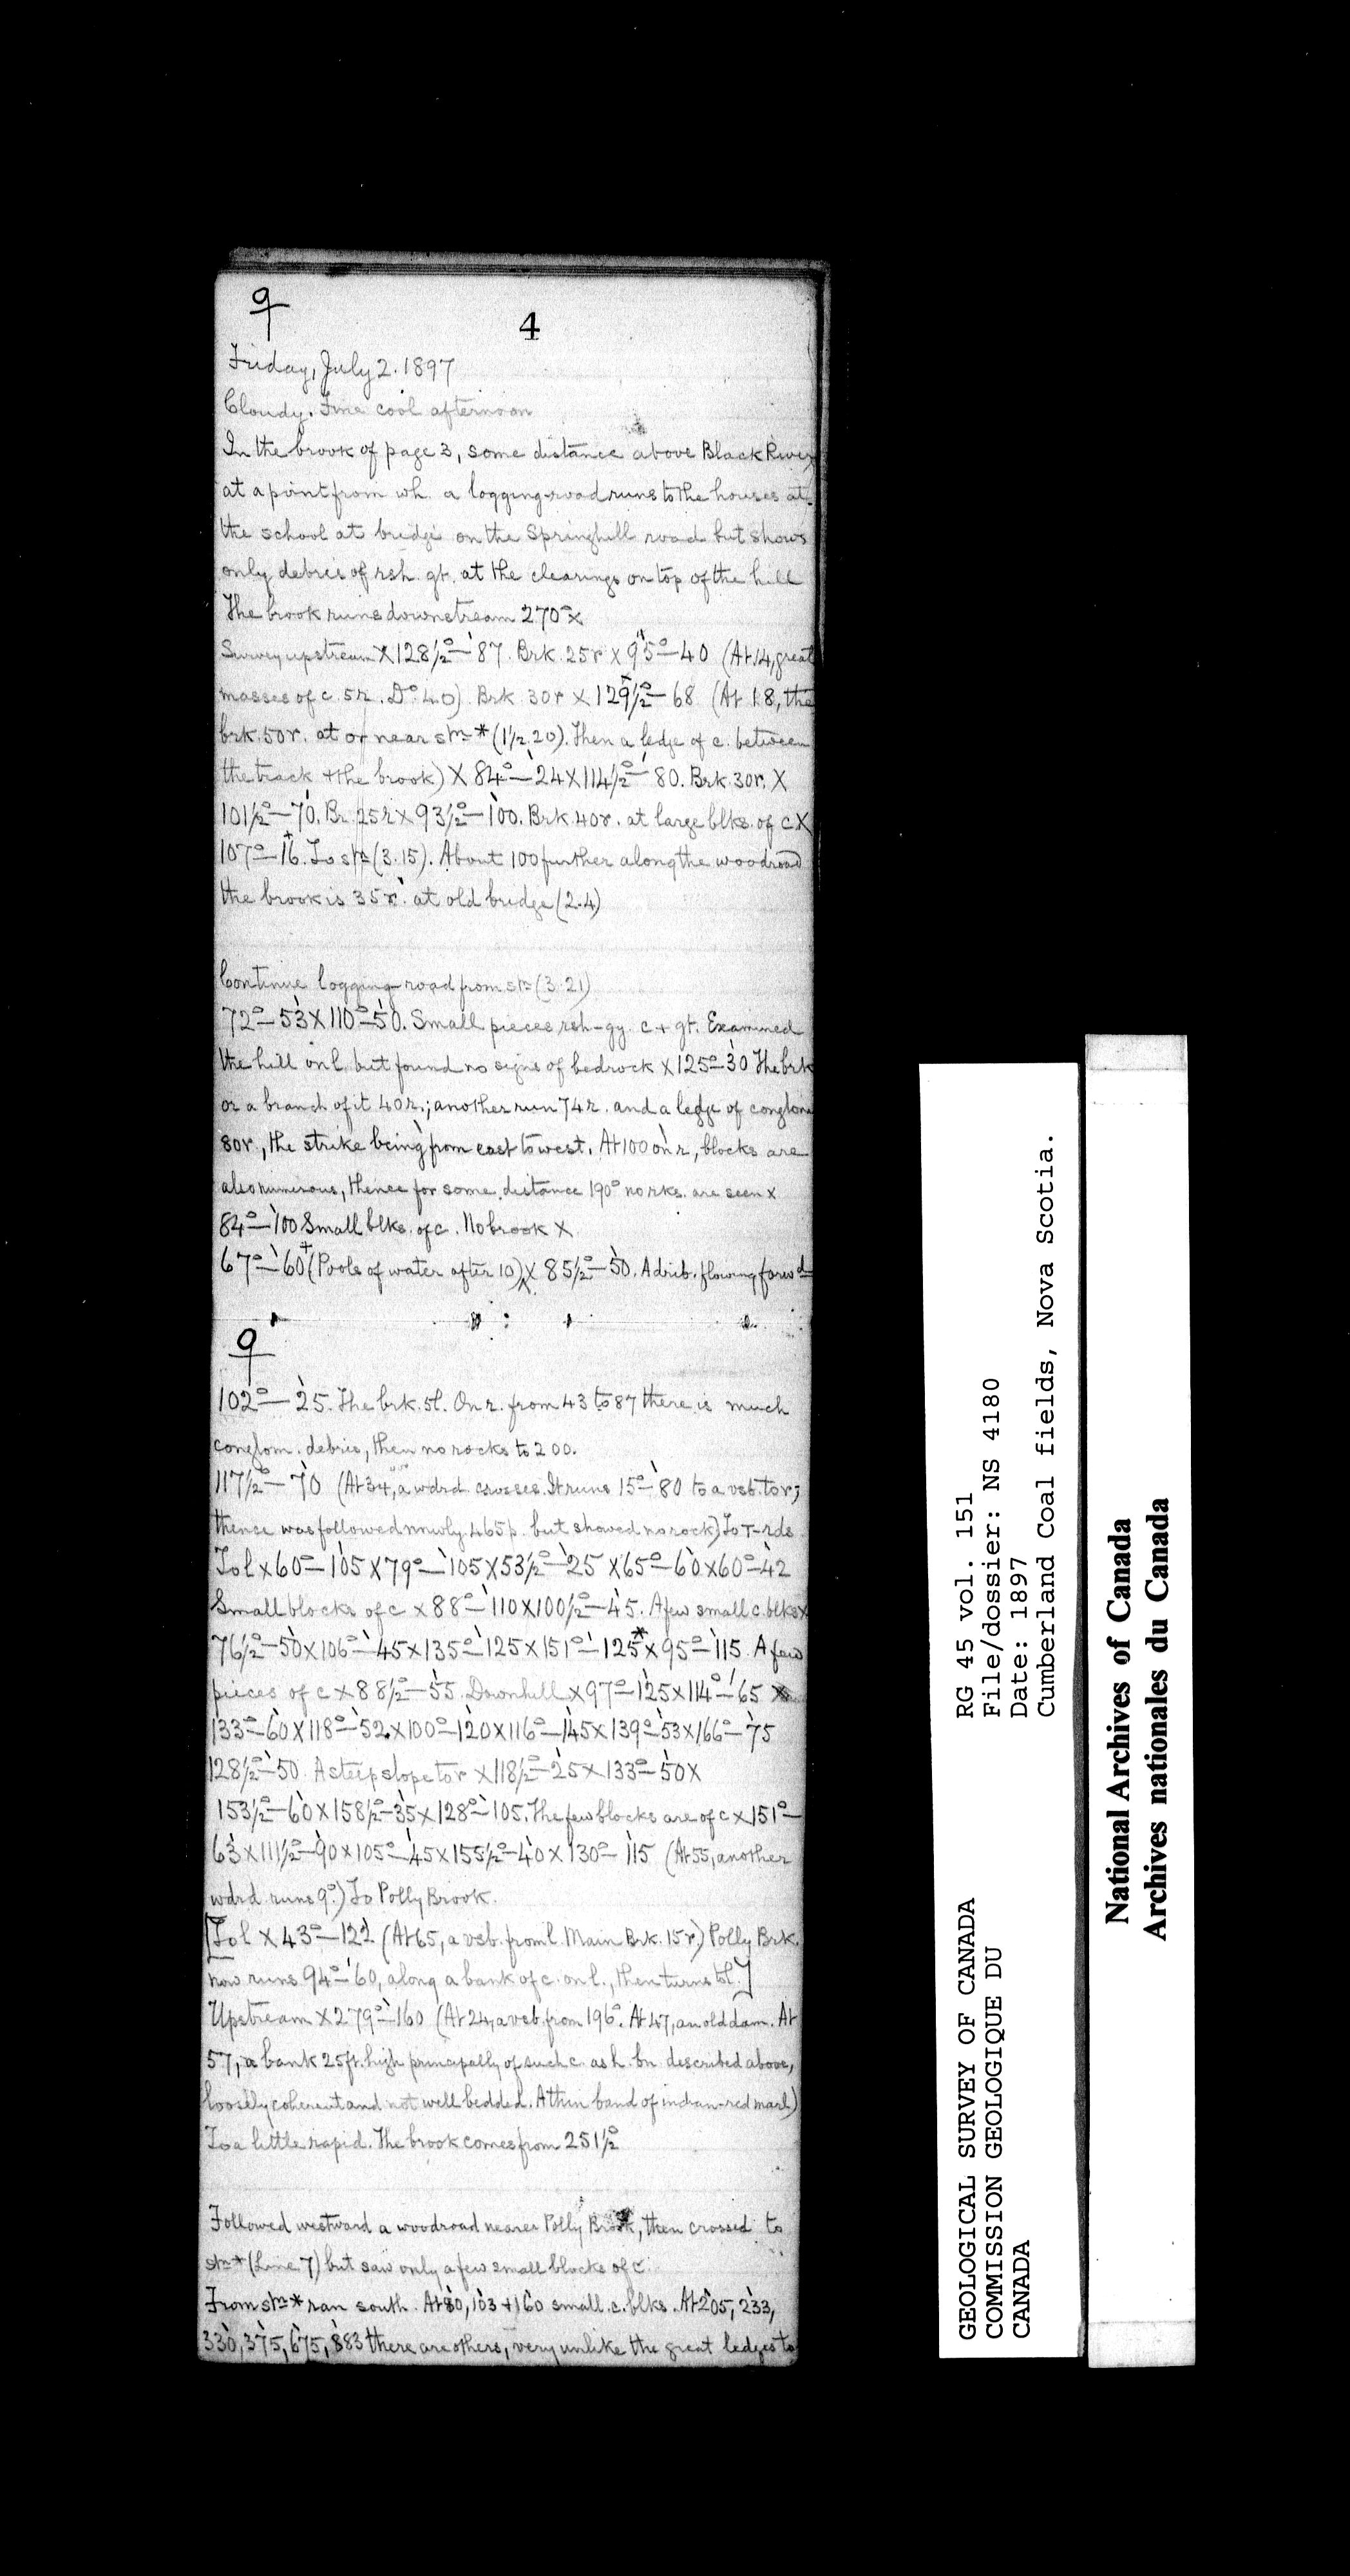 9
4
Friday, July 2. 1897
Cloudy. Fine cool afternoon
In the brook of page 3, some distance above Black River
at a point from wh. a logging-road runs to the houses at
the school at bridge on the Springhill road but shows
only debris of rsh. gt. at the clearings on top of the hill
The brook runs downstream 270° x
Survey upstream X 128½° — 87. Brk. 25r x 95° — 40 (At 14, great
masses of c. 5r. D° 40) Brk 30r x 129½° — 68 (At 18, the
brk. 50r. at or near stn * (1½.20). Then a ledge of c. between
the track + the brook) X 84° — 24 X 114½° — 80. Brk. 30r. X
101½° — 70. Br. 25r x 93½° — 100. Brk. 40r. at large blks. of c X
107° — 16. To stn (3.15). About 100 further along the woodroad
the brook is 35r. at old bridge (2.4)
Continue logging-road from stn (3.21)
72° — 53 X 110° — 50. Small pieces rsh-gy. c + gt. Examined
the hill on l. but found no signs of bedrock X 125° — 30 The brk
or a branch of it 40r.; another run 74r. and a ledge of conglom
80r, the strike being from east to west. At 100 on r, blocks are
also numerous, thence for some distance 190° no rks. are seen x
84° — 100 Small blks. of c. No brook X
67° — 60 (Pools of water after 10) X 85½° — 50. A drib. flowing forwd
9
102° — 25. The brk. 5l. On r. from 43 to 87 there is much
conglom. debris, then no rocks to 200.
117½° — 70 (At 34, a wdrd crosses. It runs 15° — 80 to a vsb. to r;
thence was followed nwwly. 465 p. but showed no rock) To T-rds
To l x 60° — 105 x 79° — 105 x 53½° — 25 x 65° — 60 x 60° — 42
Small blocks of c x 88° — 110 x 100½° — 45. A few small c. blks x
76½° — 50 x 106° — 45 x 135° — 125 x 151° — 125* x 95° — 115. A few
pieces of c x 88½° — 55. Downhill x 97° — 125 x 114° — 65
133° — 60 x 118° — 52 x 100° — 120 x 116° — 145 x 139° — 53 x 166° — 75
128½° — 50. A steep slope to r x 118½° — 25 x 133° — 50 x
153½° — 60 x 158½° — 35 x 128° — 105. The few blocks are of c x 151° —
63 x 111½° — 90 x 105° — 45 x 155½° — 40 x 130° — 115 (At 55, another
wdrd runs 9°.) To Polly Brook.
[To l x 43° — 122 (At 65, a vsb. from l. Main Brk. 15r.) Polly Brk.
now runs 94° — 60, along a bank of c. on l., then turns to l.]
Upstream x 279° — 160 (At 24, a vsb. from 196°. At 47, an old dam. At
57, a bank 25 ft. high principally of such c. as h. bn. described above,
loosely coherent and not well bedded. A thin band of indian-red marl)
To a little rapid. The brook comes from 251½°
Followed westward a woodroad nearer Polly Brook, then crossed to
stn * (Line 7) but saw only a few small blocks of c.
From stn * ran south. At 80, 103 + 160 small c. blks. At 205, 233,
330, 375, 675, 883 there are others, very unlike the great ledges to
GEOLOGICAL SURVEY OF CANADA
COMMISSION GEOLOGIQUE DU
CANADA
RG 45 vol. 151
File/dossier: NS 4180
Date: 1897
Cumberland Coal fields, Nova Scotia.
National Archives of Canada
Archives nationales du Canada